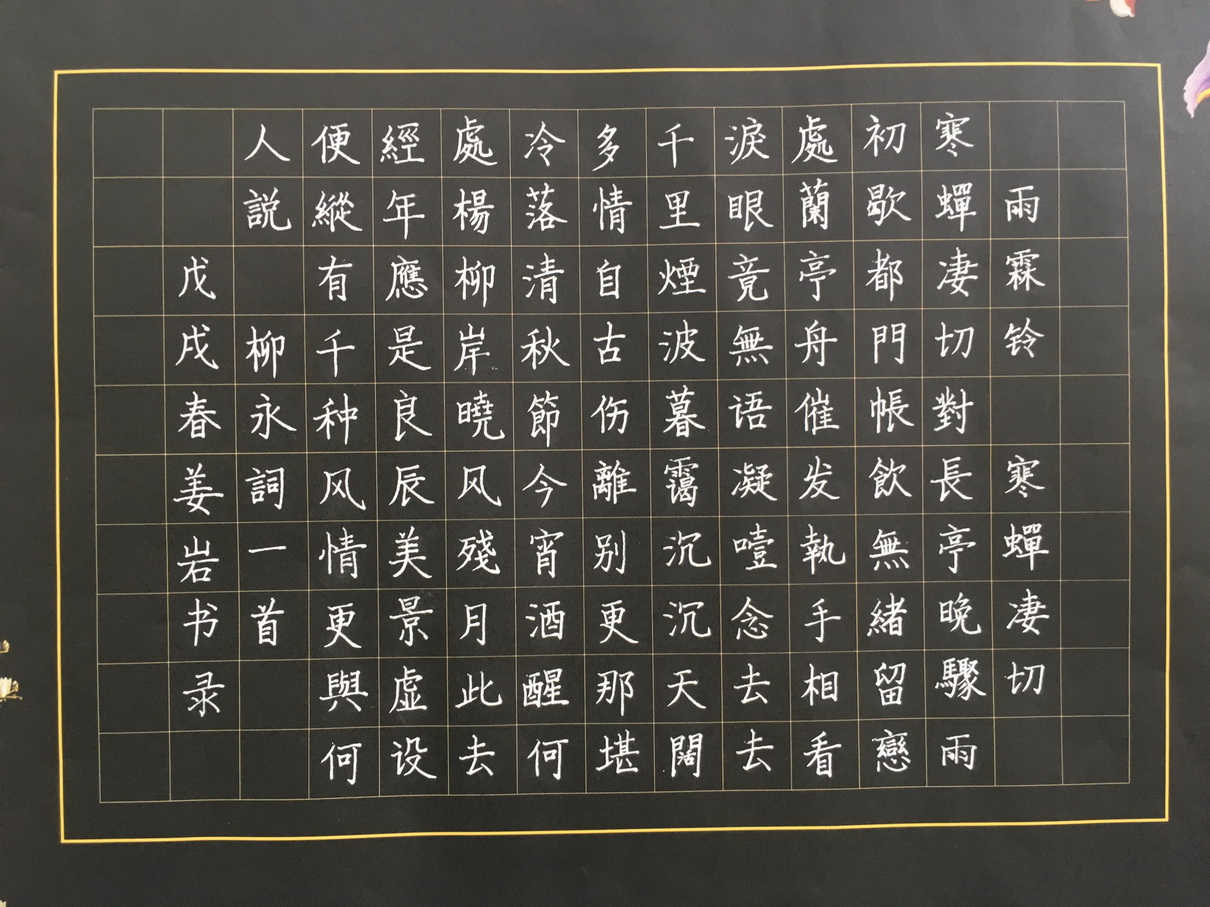 雨霖铃 寒蟬凄切
寒蟬凄切對長亭晚驟雨
初歇都門帳飲無緒留戀
處蘭亭舟催发執手相看
淚眼竟無语凝噎念去去
千里煙波暮靄沉沉天闊
多情自古伤離别更那堪
冷落清秋節今宵酒醒何
處楊柳岸曉风殘月此去
經年應是良辰美景虛设
便縱有千种风情更與何
人説 柳永詞一首
戊戌春姜岩书录